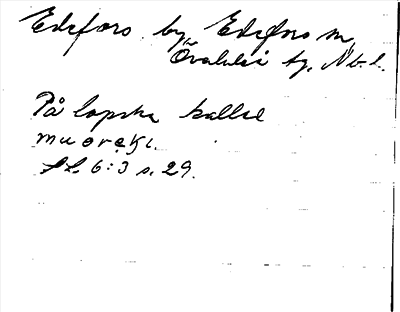 Edefors by, Edefors sn,
Överluleå tg. Nb. l.
På lapska kallad
muorẹki.
SL 6:3 s. 29.